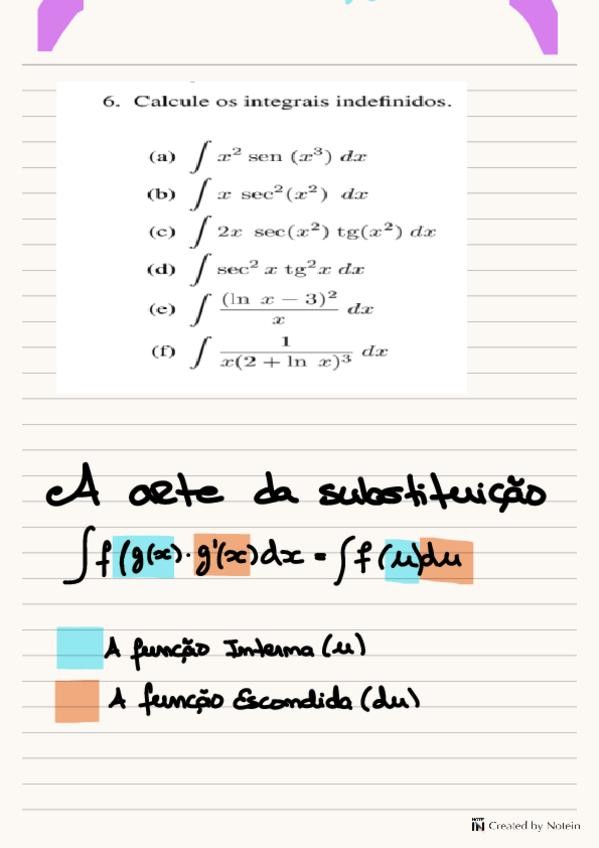 6. Calcule os integrais indefinidos.
(a) ∫ x² sen (x³) dx
(b) ∫ x sec²(x²) dx
(c) ∫ 2x sec(x²) tg(x²) dx
(d) ∫ sec² x tg²x dx
(e) ∫ (ln x − 3)² / x dx
(f) ∫ 1 / x(2 + ln x)³ dx
A arte da substituição
∫f(g(x)·g'(x)dx = ∫f(u)du
A função Interna (u)
A função Escondida (du)
NOTE IN Created by Notein